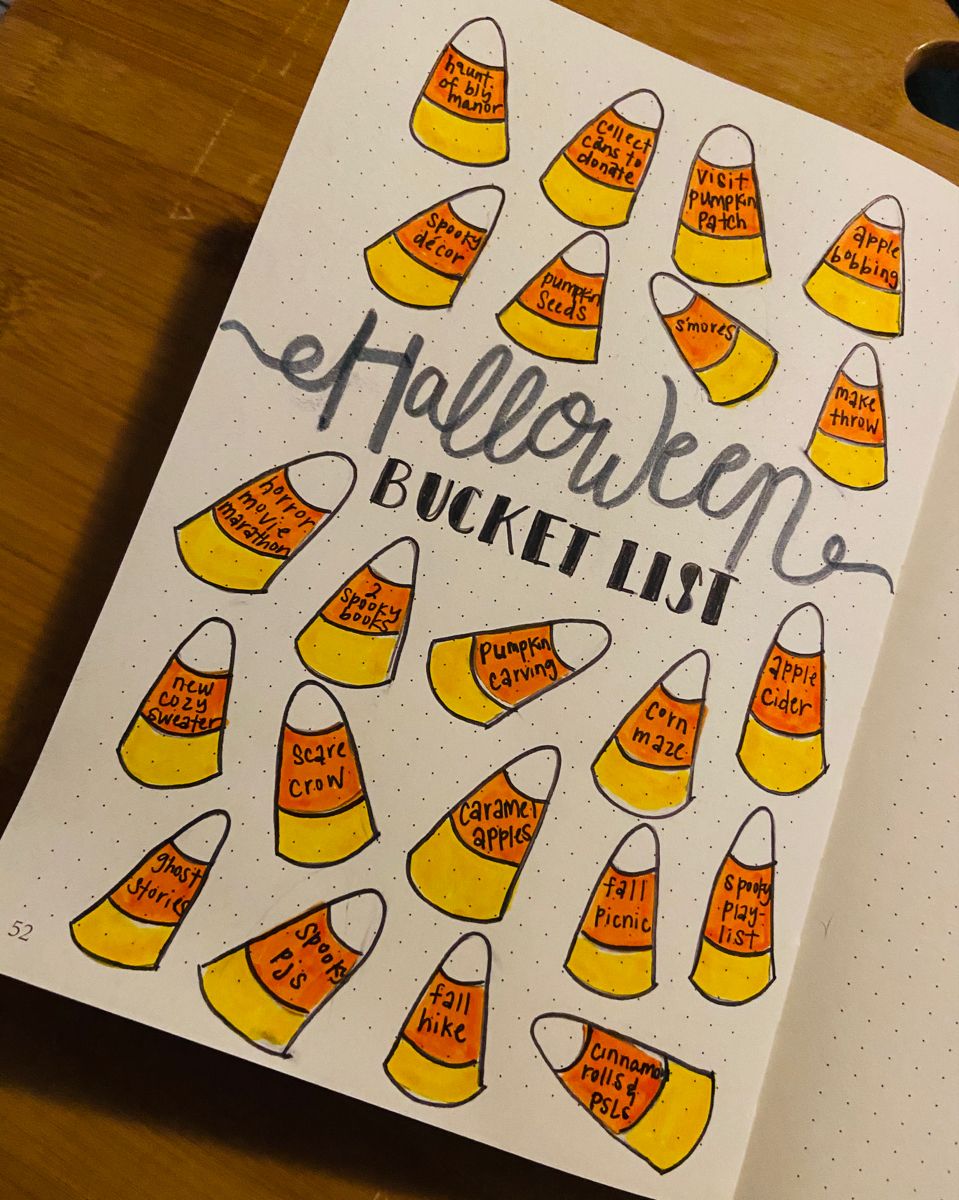 haunt
of bly
manor
collect
cans to
donate
visit
pumpkin
patch
apple
bobbing
spooky
décor
pumpkin
seeds
s'mores
make
throw
Halloween
BUCKET LIST
horror
movie
marathon
2
spooky
books
pumpkin
carving
apple
cider
new
cozy
sweater
scare
crow
corn
maze
caramel
apples
ghost
stories
fall
picnic
spooky
play-
list
spooky
pj's
fall
hike
cinnamon
rolls &
PSLs
52